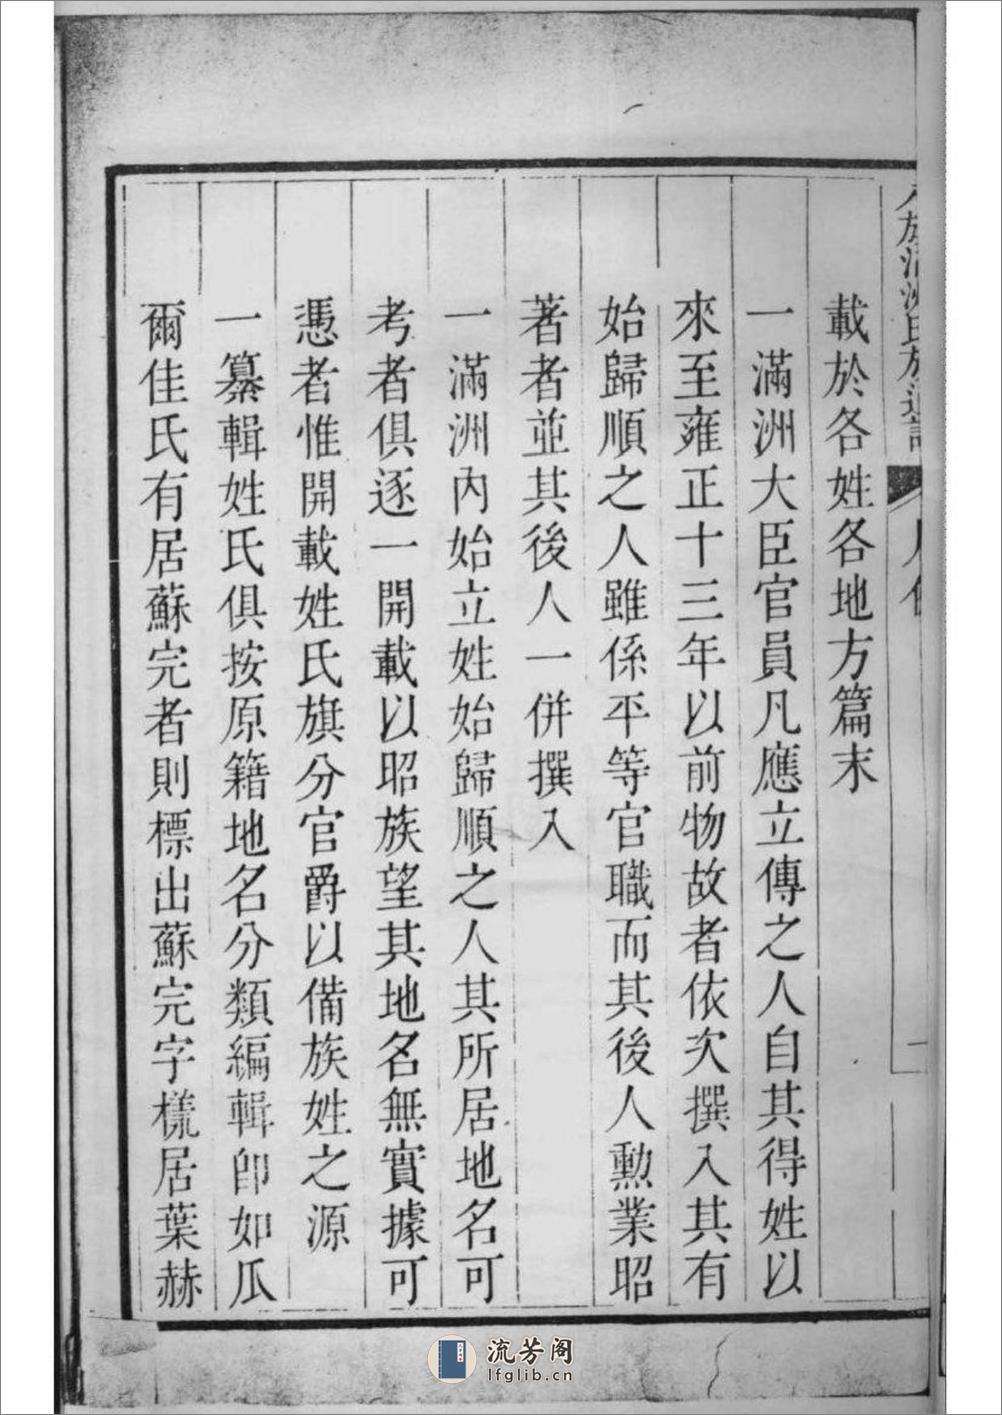 載於各姓各地方篇末
一滿洲大臣官員凡應立傳之人自其得姓以
來至雍正十三年以前物故者依次撰入其有
始歸順之人雖係平等官職而其後人勳業昭
著者並其後人一併撰入
一滿洲內始立姓始歸順之人其所居地名可
考者俱逐一開載以昭族望其地名無實據可
憑者惟開載姓氏旗分官爵以備族姓之源
一纂輯姓氏俱按原籍地名分類編輯卽如瓜
爾佳氏有居蘇完者則標出蘇完字樣居葉赫
流芳阁
lfglib.cn